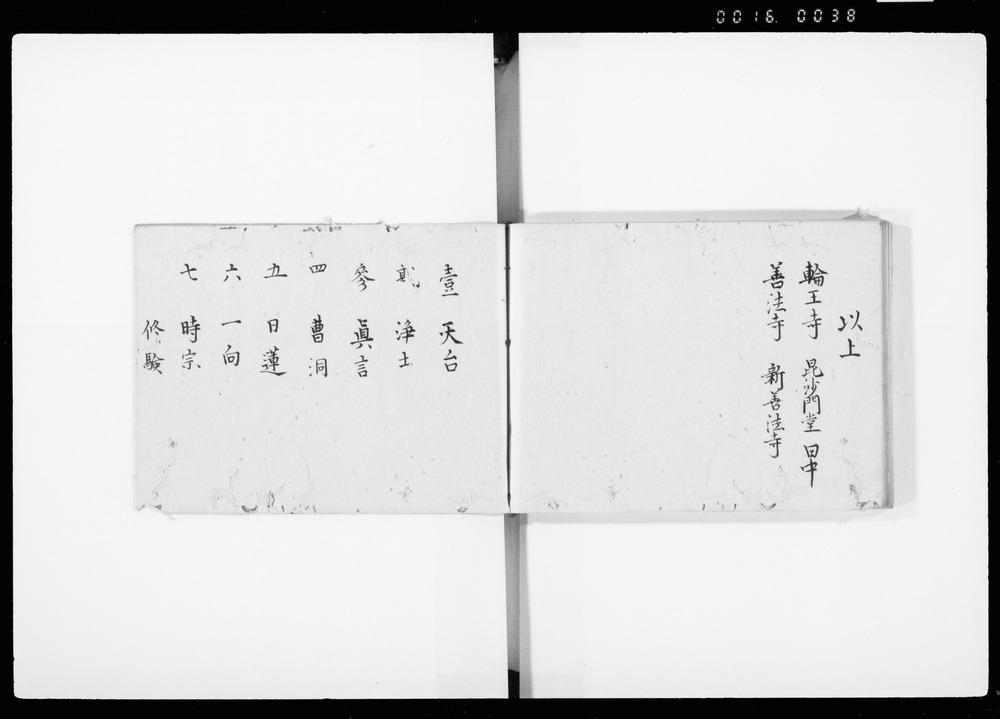 0016.0038
以上
輪王寺　毘沙門堂　日中
善法寺　新善法寺
壹　天台
貳　浄土
參　眞言
四　曹洞
五　日蓮
六　一向
七　時宗
修験